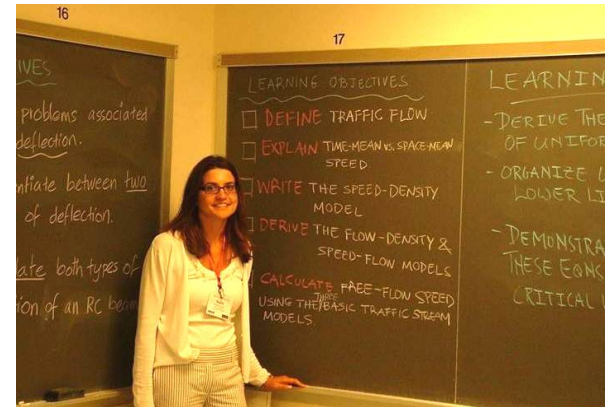 16
IVES
problems associated
deflection.
ntiate between two
of deflection.
late both types of
ion of an RC beam
17
LEARNING OBJECTIVES
DEFINE TRAFFIC FLOW
EXPLAIN TIME-MEAN vs. SPACE-MEAN
SPEED
WRITE THE SPEED-DENSITY
MODEL
DERIVE THE FLOW-DENSITY &
SPEED-FLOW MODELS
CALCULATE FREE-FLOW SPEED
USING THE THREE BASIC TRAFFIC STREAM
MODELS.
LEARNIN
- DERIVE THE
OF UNIFOR
- ORGANIZE
LOWER LI
- DEMONSTRA
THESE EQNS
CRITICAL